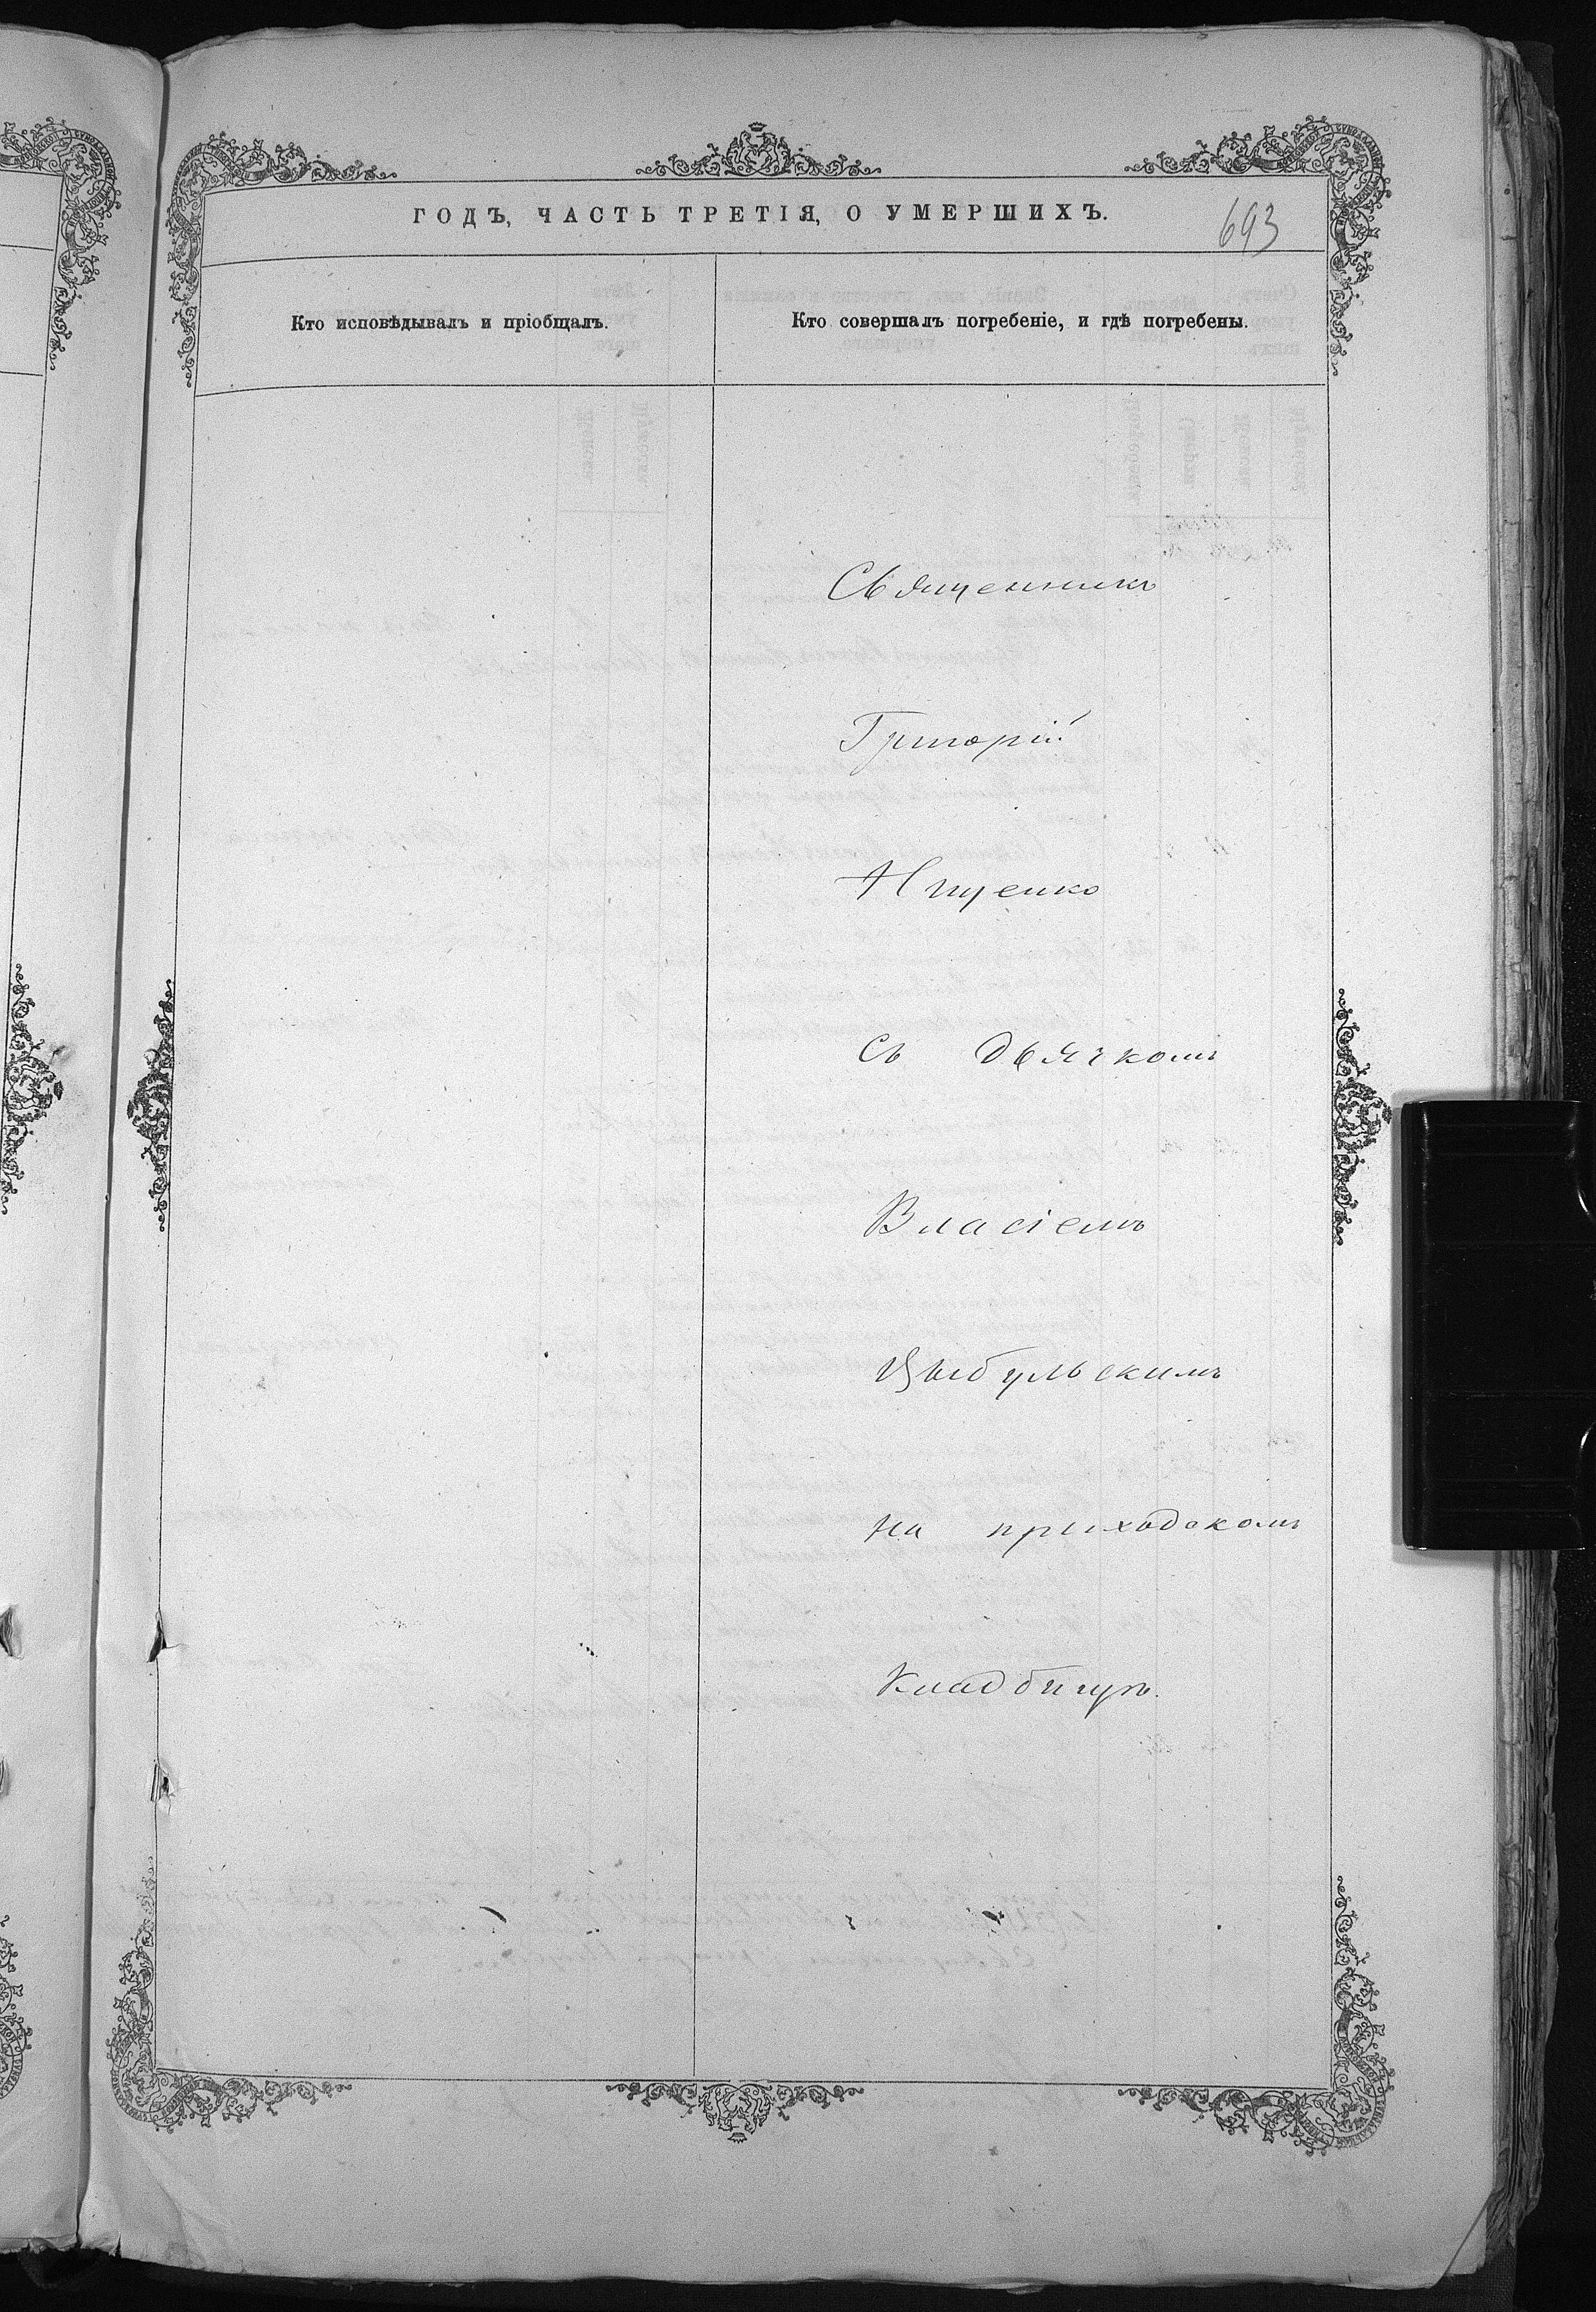 ГОДЪ, ЧАСТЬ ТРЕТІЯ, О УМЕРШИХЪ.
693
Кто исповѣдывалъ и пріобщалъ.
Кто совершалъ погребеніе, и гдѣ погребены.
Священникъ
Григорій
Ищенко
съ дьячкомъ
Власіемъ
Цыбульскимъ
на приходскомъ
Кладбищѣ.